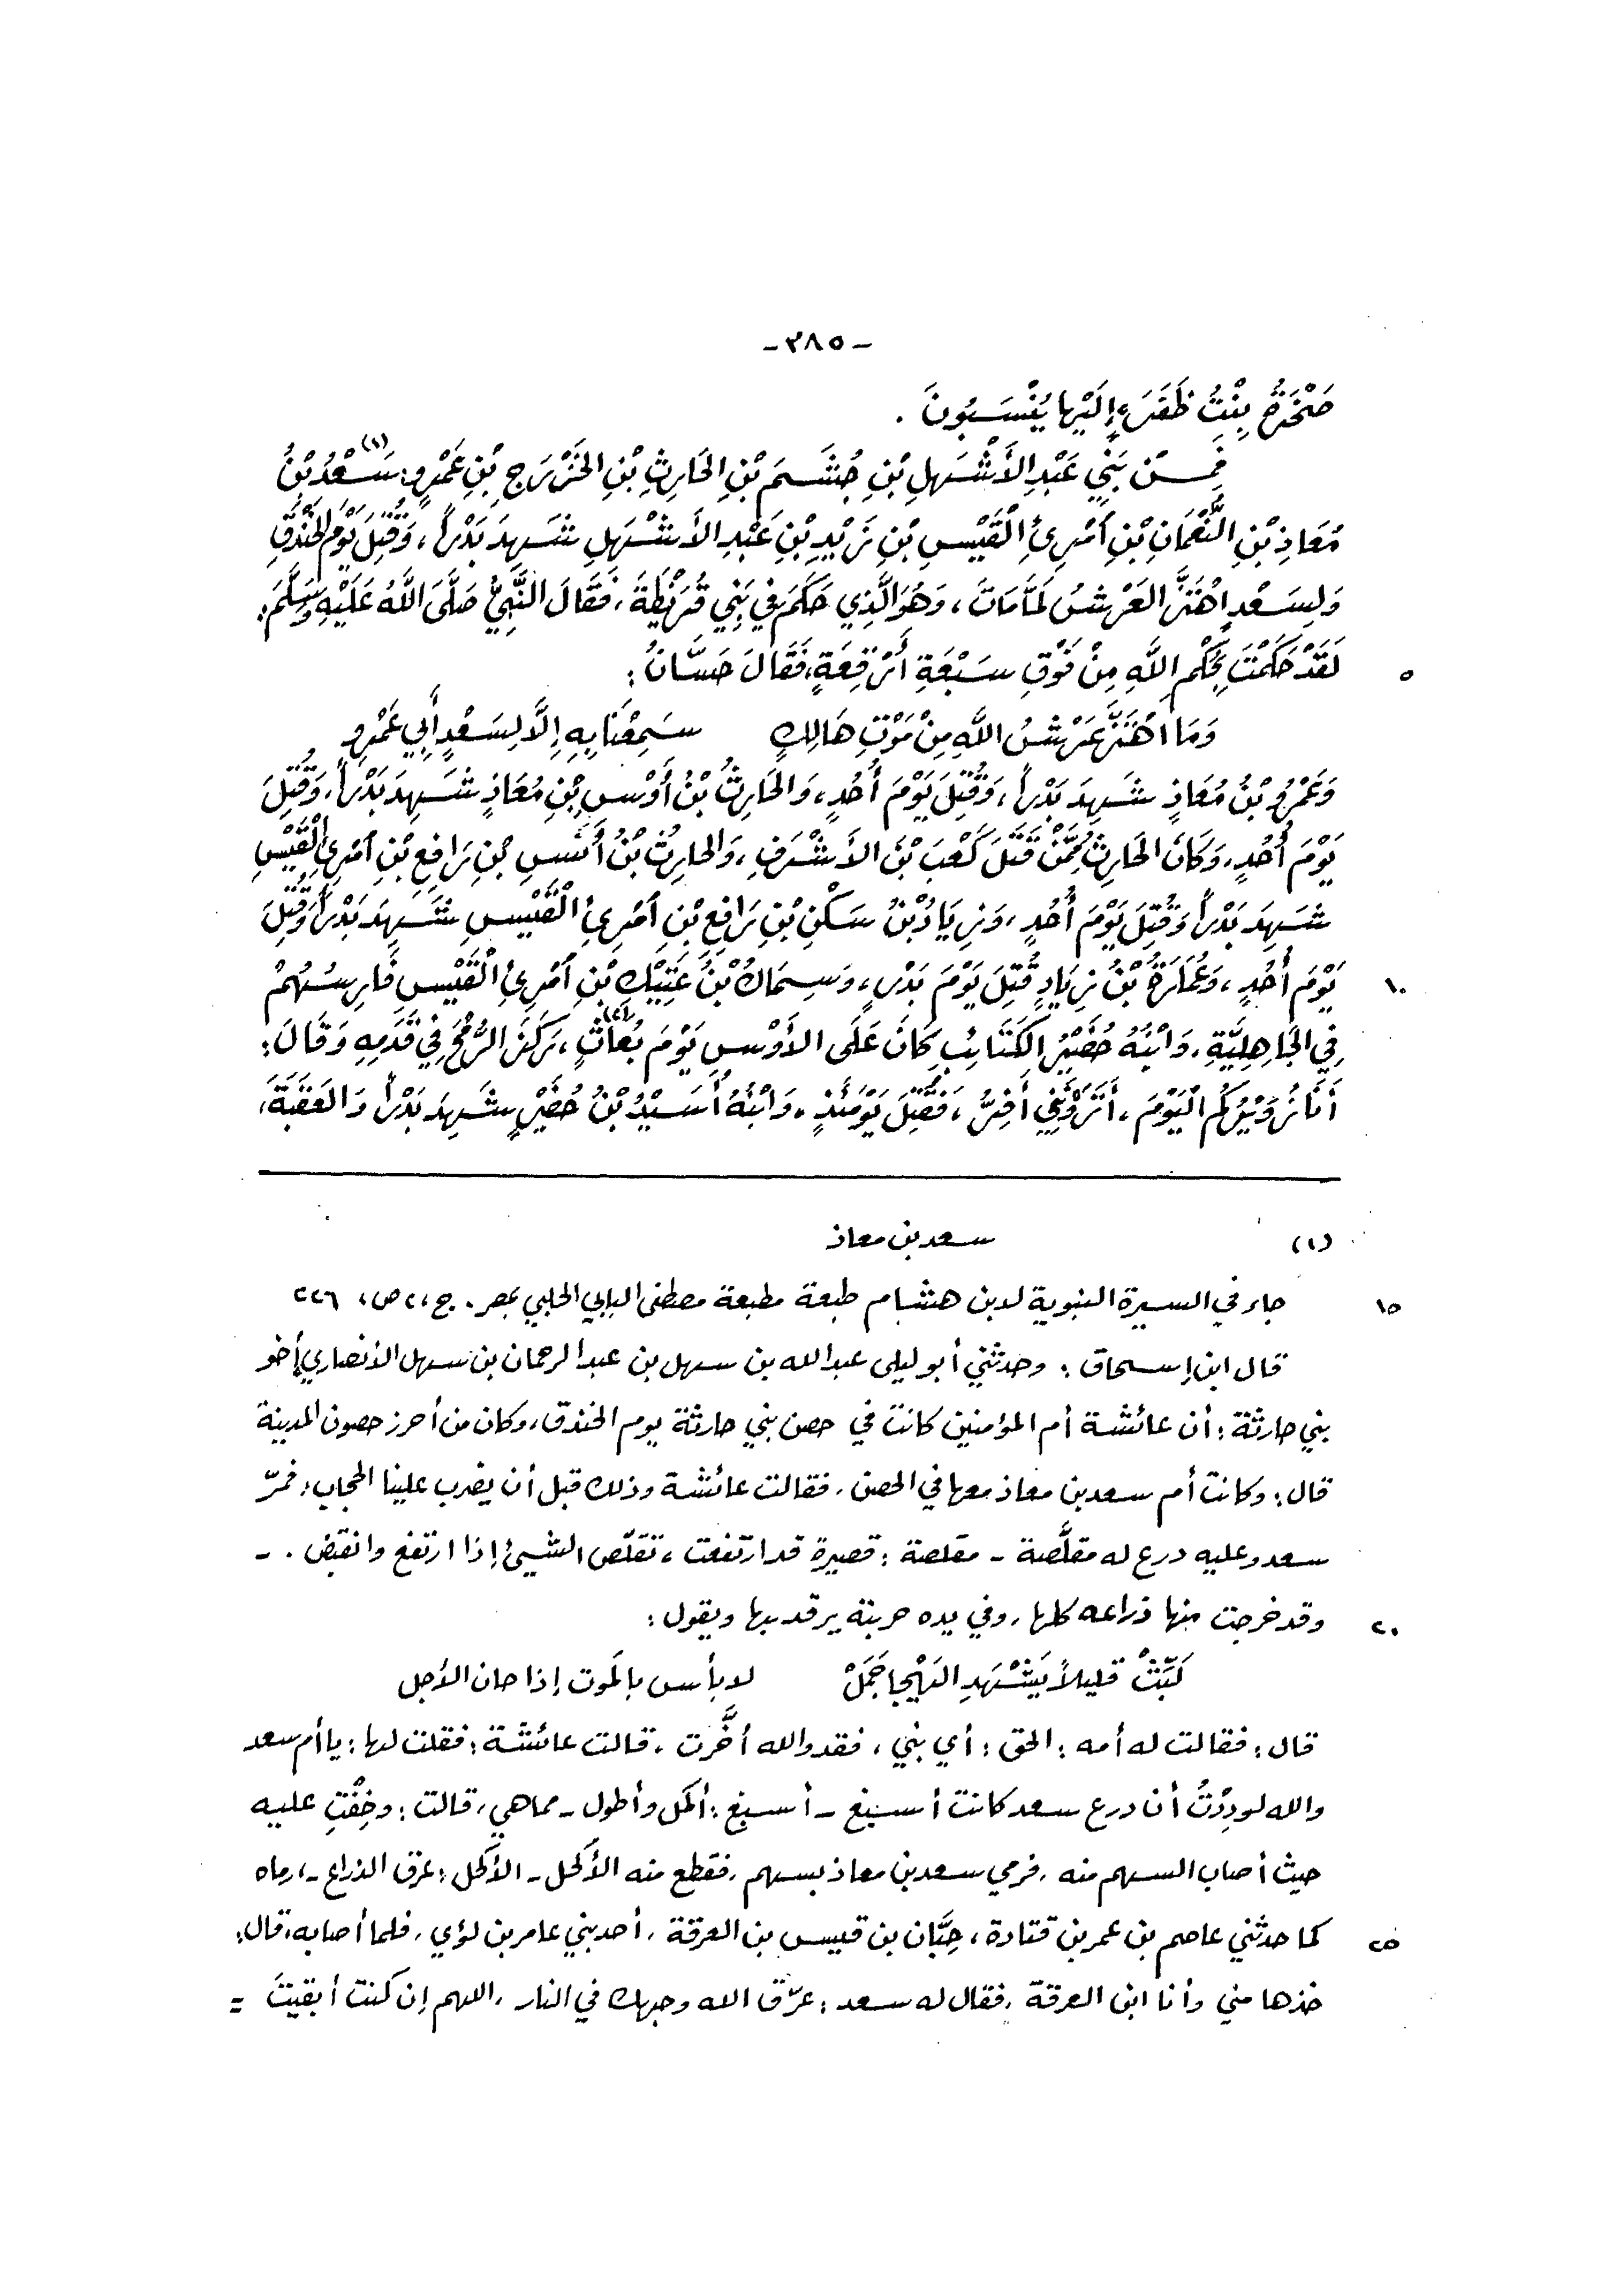 -٣٨٥-
صَخْرَةُ بِنْتُ ظَفَرَ، إِلَيْها يُنْسَبُونَ .
فَمِـنْ بَنِي عَبْدِ الأَشْهَلِ بْنِ جُشَمَ بْنِ الحَارِثِ بْنِ الخَزْرَجِ بْنِ عَمْرٍو: سَعْدُ بْنُ (١)
مُعَاذِ بْنِ النُّعْمَانِ بْنِ آمْرِئِ الْقَيْسِ بْنِ زَيْدِ بْنِ عَبْدِ الأَشْهَلِ شَهِدَ بَدْراً، وَقُتِلَ يَوْمَ الخَنْدَقِ
وَلِسَعْدٍ اهْتَزَّ العَرْشُ لَمَّا مَاتَ، وَهُوَ الَّذِي حَكَمَ فِي بَنِي قُرَيْظَةَ، فَقَالَ النَّبِيُّ صَلَّى اللَّهُ عَلَيْهِ وَسَلَّمَ:
لَقَدْ حَكَمْتَ بِحُكْمِ اللَّهِ مِنْ فَوْقِ سَبْعَةِ أَرْقِعَةٍ، فَقَالَ حَسَّانُ: ٥
وَمَا اهْتَزَّ عَرْشُ اللَّهِ مِنْ مَوْتِ هَالِكٍ سَمِعْنَا بِهِ إِلَّا لِسَعْدٍ أَبِي عَمْرِو
وَعَمْرُو بْنُ مُعَاذٍ شَهِدَ بَدْراً، وَقُتِلَ يَوْمَ أُحُدٍ، وَالحَارِثُ بْنُ أَوْسِ بْنِ مُعَاذٍ شَهِدَ بَدْراً، وَقُتِلَ
يَوْمَ أُحُدٍ، وَكَانَ الحَارِثُ مِمَّنْ قَتَلَ كَعْبَ بْنَ الأَشْرَفِ، وَالحَارِثُ بْنُ أَنَسِ بْنِ رَافِعِ بْنِ آمْرِئِ الْقَيْسِ
شَهِدَ بَدْراً وَقُتِلَ يَوْمَ أُحُدٍ، وَزِيَادُ بْنُ سَكَنِ بْنِ رَافِعِ بْنِ آمْرِئِ الْقَيْسِ شَهِدَ بَدْراً وَقُتِلَ
يَوْمَ أُحُدٍ، وَعُمَارَةُ بْنُ زِيَادٍ قُتِلَ يَوْمَ بَدْرٍ، وَسِمَاكُ بْنُ عَتِيْكِ بْنِ آمْرِئِ الْقَيْسِ فَارِسُهُمْ ١٠
فِي الجَاهِلِيَّةِ، وَابْنُهُ حُضَيْرُ الكَتَائِبِ كَانَ عَلَى الأَوْسِ يَوْمَ بُعَاثٍ (٢)، رَكَزَ الرُّمْحَ فِي قَدَمِهِ وَقَالَ:
أَنَا زُوَيْرُكُمُ الْيَوْمَ، أَتَرَوْنِي أَفِرُّ، فَقُتِلَ يَوْمَئِذٍ، وَابْنُهُ أُسَيْدُ بْنُ حُضَيْرٍ شَهِدَ بَدْراً وَالعَقَبَةَ،
(١) سعد بن معاذ
جاء في السيرة النبوية لابن هشام طبعة مطبعة مصطفى البابي الحلبي بمصر . ج، ٢ ص، ٢٢٦ ١٥
قال ابن إسحاق : وحدثني أبو ليلى عبدالله بن سهل بن عبدالرحمان بن سهل الأنصاري أخو
بني حارثة : أن عائشة أم المؤمنين كانت في حصن بني حارثة يوم الخندق، وكان من أحرز حصون المدينة
قال : وكانت أم سعد بن معاذ معها في الحصن، فقالت عائشة وذلك قبل أن يضرب علينا الحجاب : فمرّ
سعد وعليه درع له مقلَّصة - مقلصة : قصيرة قد ارتفعت، تقلّص الشيئ إذا ارتفع وانقبض . -
وقد خرجت منها ذراعه كلها، وفي يده حربة يرقد بها ويقول : ٢٠
لَبِّثْ قليلاً يَشْهَدِ الهَيْجا جَمَلْ لا بأس بالموت إذا حان الأجل
قال : فقالت له أمه : الحق : أي بُني، فقد والله أخَّرت، قالت عائشة : فقلت لها : يا أم سعد
والله لودِدْتُ أن درع سعد كانت أسبغ - أسبغ : أكمل وأطول - مما هي، قالت : وخِفْتِ عليه
حيث أصاب السهم منه، فرمي سعد بن معاذ بسهم، فقطع منه الأكحل - الأكحل : عرق الذراع -، رماه
كما حدثني عاصم بن عمر بن قتادة، حِبَّان بن قيس بن العرقة، أحد بني عامر بن لؤي، فلما أصابه، قال : ٢٥
خذها مني وأنا ابن العرقة، فقال له سعد : عرّق الله وجهك في النار، اللهم إن كنت أبقيتَ =